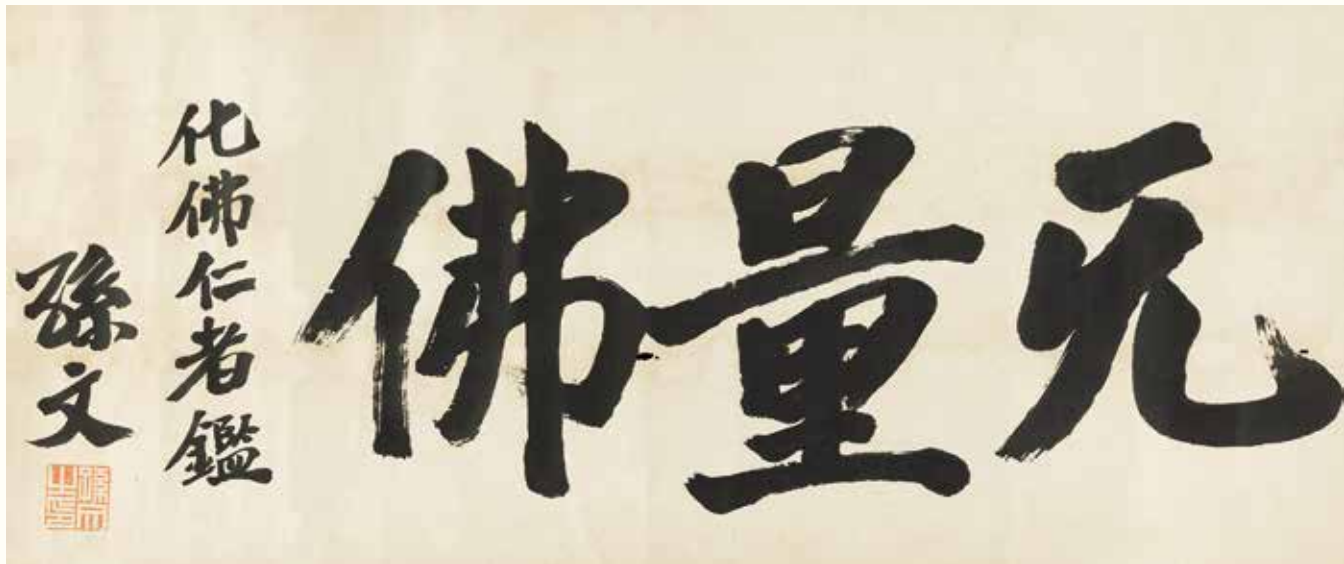 无量佛
化佛仁者鑑
孫文
孫文之印